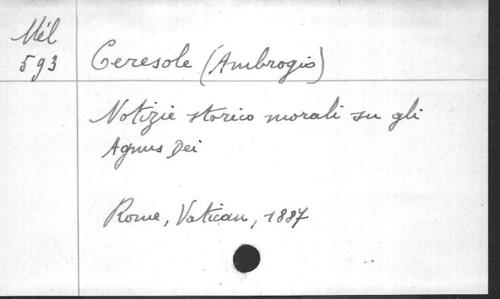 Mél
593
Ceresole (Ambrogio)
Notizie storico morali su gli
Agnus Dei
Rome, Vatican, 1887